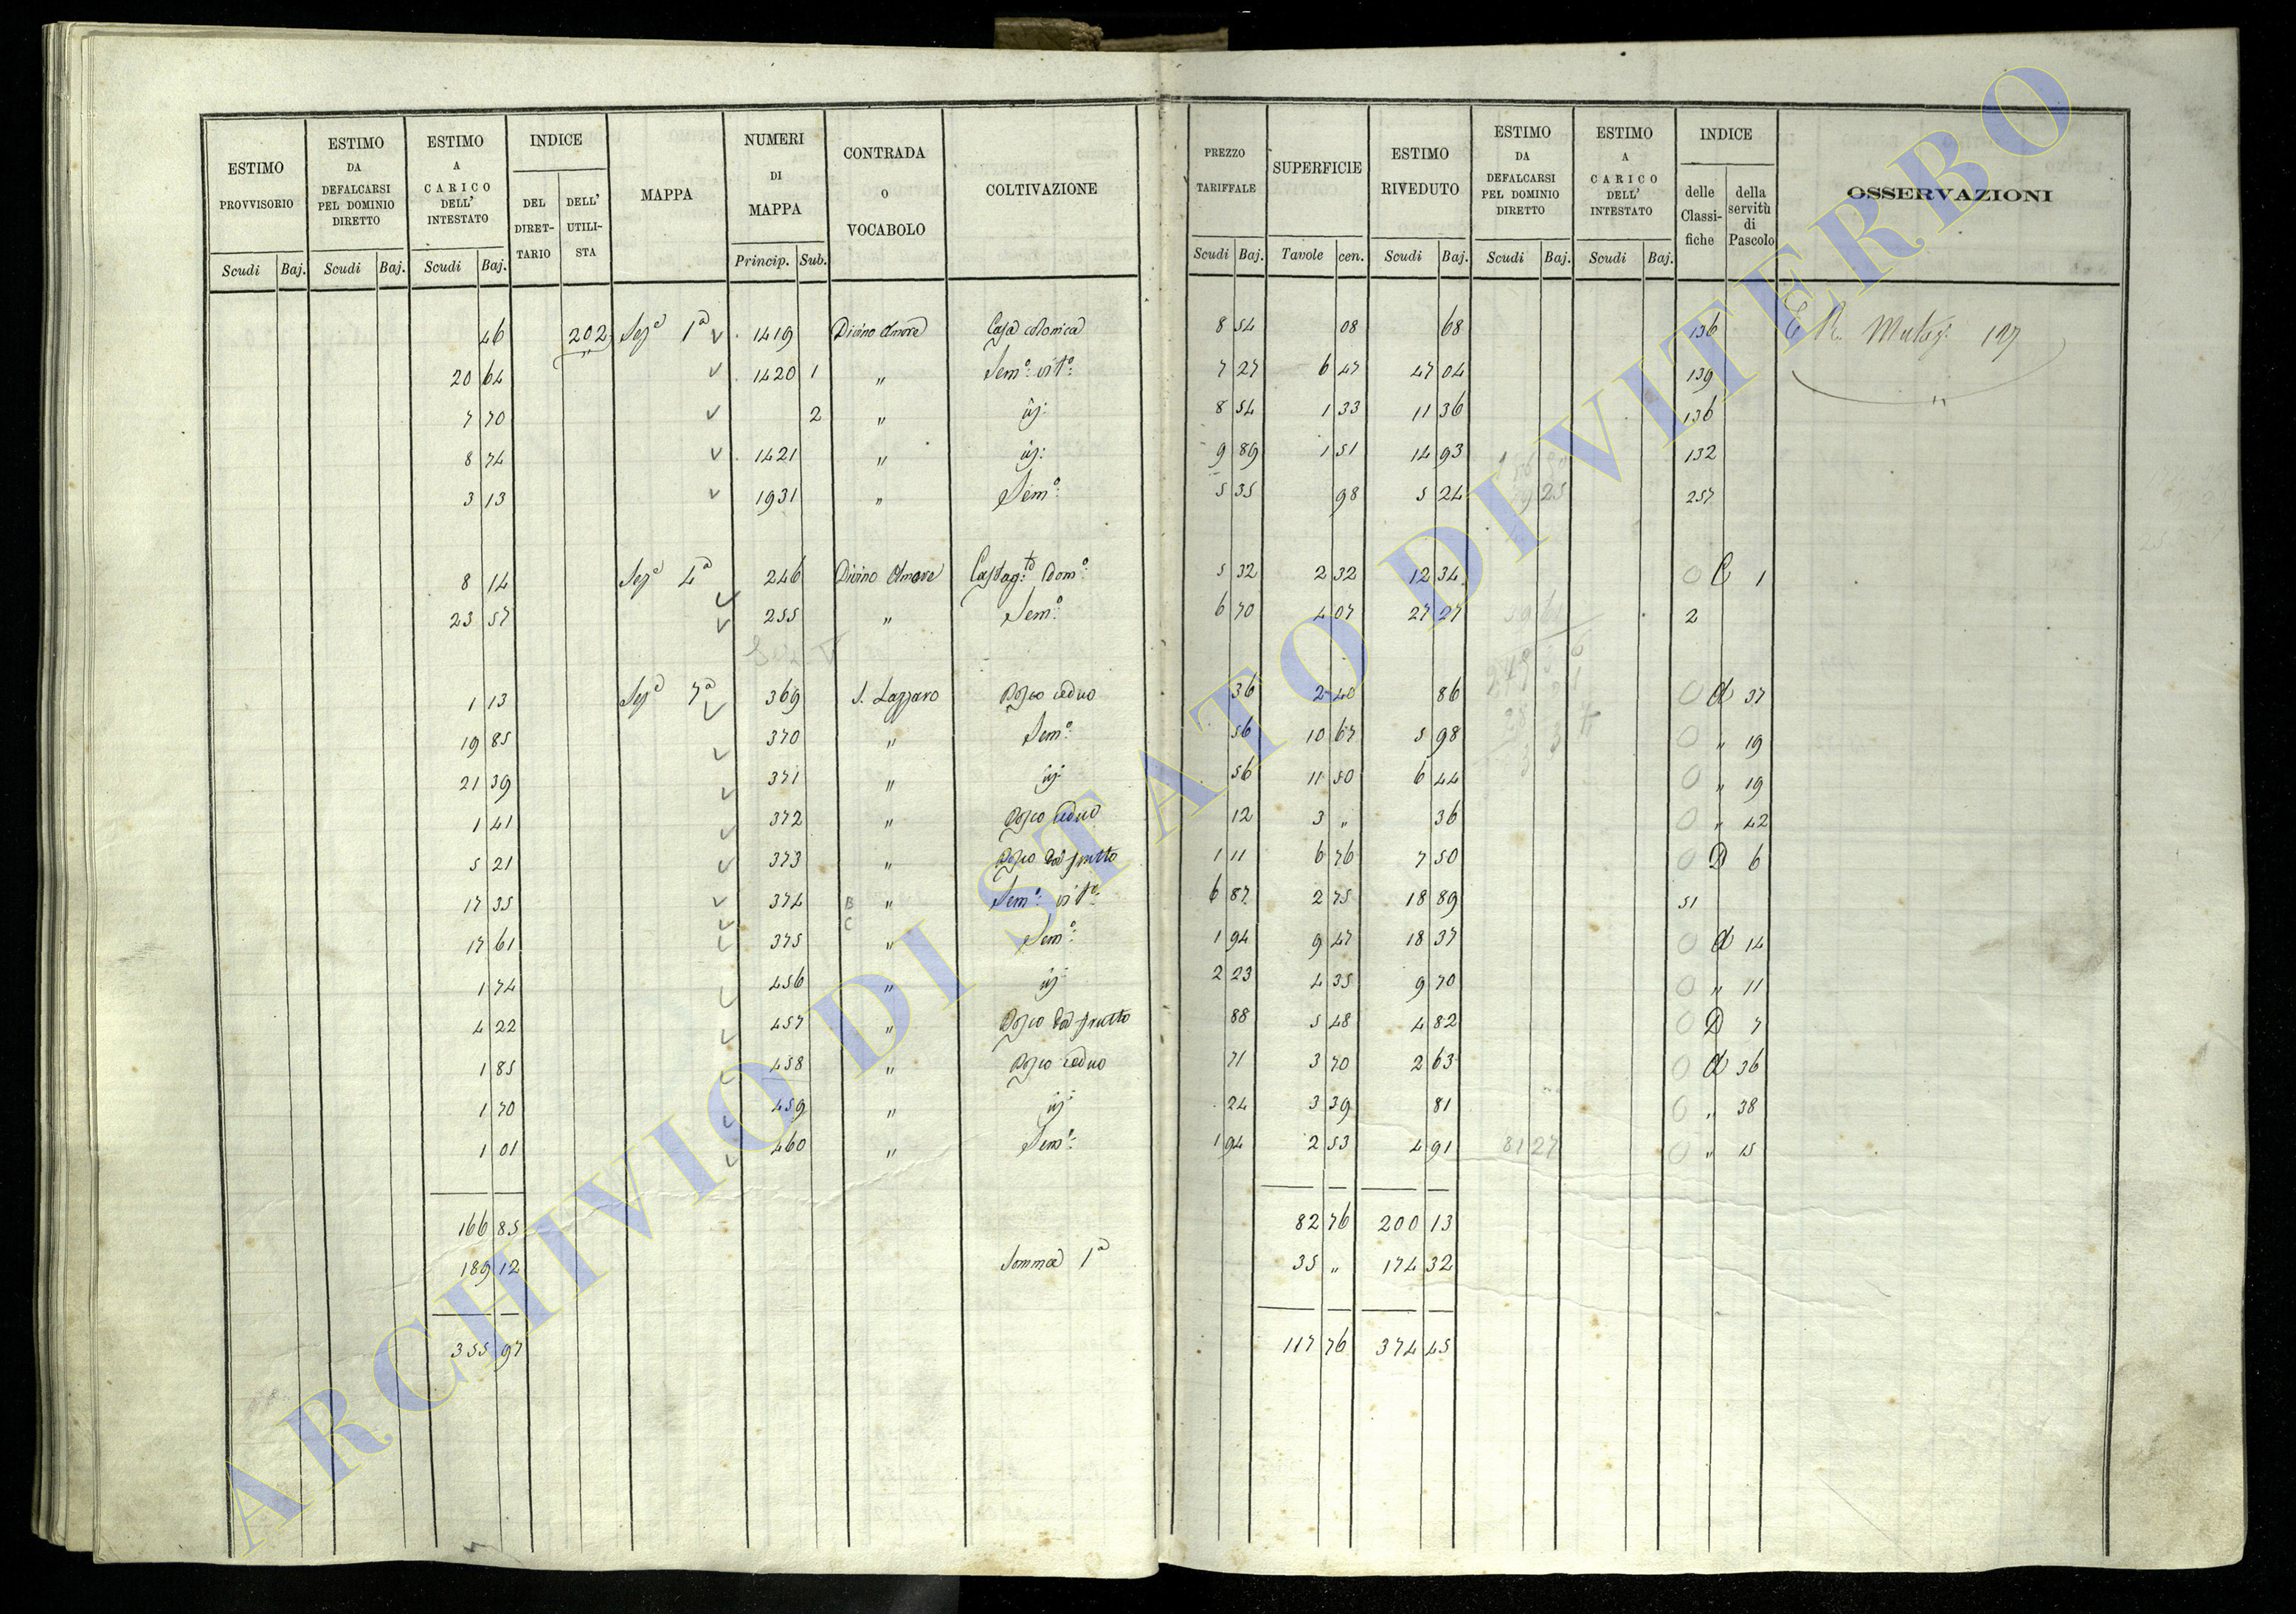 ESTIMO PROVVISORIO Scudi Baj.
ESTIMO DA DEFALCARSI PEL DOMINIO DIRETTO Scudi Baj.
ESTIMO A CARICO DELL' INTESTATO Scudi Baj.
INDICE DEL DIRET-TARIO DELL' UTILI-STA
MAPPA
NUMERI DI MAPPA Princip. Sub.
CONTRADA o VOCABOLO
COLTIVAZIONE
PREZZO TARIFFALE Scudi Baj.
SUPERFICIE Tavole cen.
ESTIMO RIVEDUTO Scudi Baj.
ESTIMO DA DEFALCARSI PEL DOMINIO DIRETTO Scudi Baj.
ESTIMO A CARICO DELL' INTESTATO Scudi Baj.
INDICE delle Classi-fiche della servitù di Pascolo
OSSERVAZIONI
46 202 Sezᵉ 1ª 1419 Divino Amore Casa colonica 8 54 08 68 136 Mutaz: 197
20 64 1420 1 " Semº: vitº: 7 27 6 47 47 04 139
7 70 2 " id: 8 54 1 33 11 36 136
8 74 1421 " id: 9 89 1 51 14 93 132
3 13 1931 " Semº: 5 35 98 5 24 257
8 14 Sezᵉ 4ª 246 Divino Amore Castagtº: Domº: 5 32 2 32 12 34 C 1
23 57 255 " Semº: 6 70 4 07 27 27 2
1 13 Sezᵉ 7ª 369 S. Lazzaro Bosco ceduo 36 2 40 86 A 37
19 85 370 " Semº: 56 10 67 5 98 " 19
21 39 371 " id: 56 11 50 6 44 " 19
1 41 372 " Bosco ceduo 12 3 " 36 " 42
5 21 373 " Bosco da frutto 1 11 6 76 7 50 D 6
17 35 374 " Semº: vitº: 6 87 2 75 18 89 51
17 61 375 " Semº: 1 94 9 47 18 37 A 14
1 74 456 " id: 2 23 4 35 9 70 " 11
4 22 457 " Bosco da frutto 88 5 48 4 82 D 7
1 85 458 " Bosco ceduo 71 3 70 2 63 A 36
1 70 459 " id: 24 3 39 81 " 38
1 01 460 " Semº: 1 94 2 53 4 91 81 27 " 15
166 85 82 76 200 13
189 12 Somma 1ª 35 " 174 32
355 97 117 76 374 45
ARCHIVIO DI STATO DI VITERBO